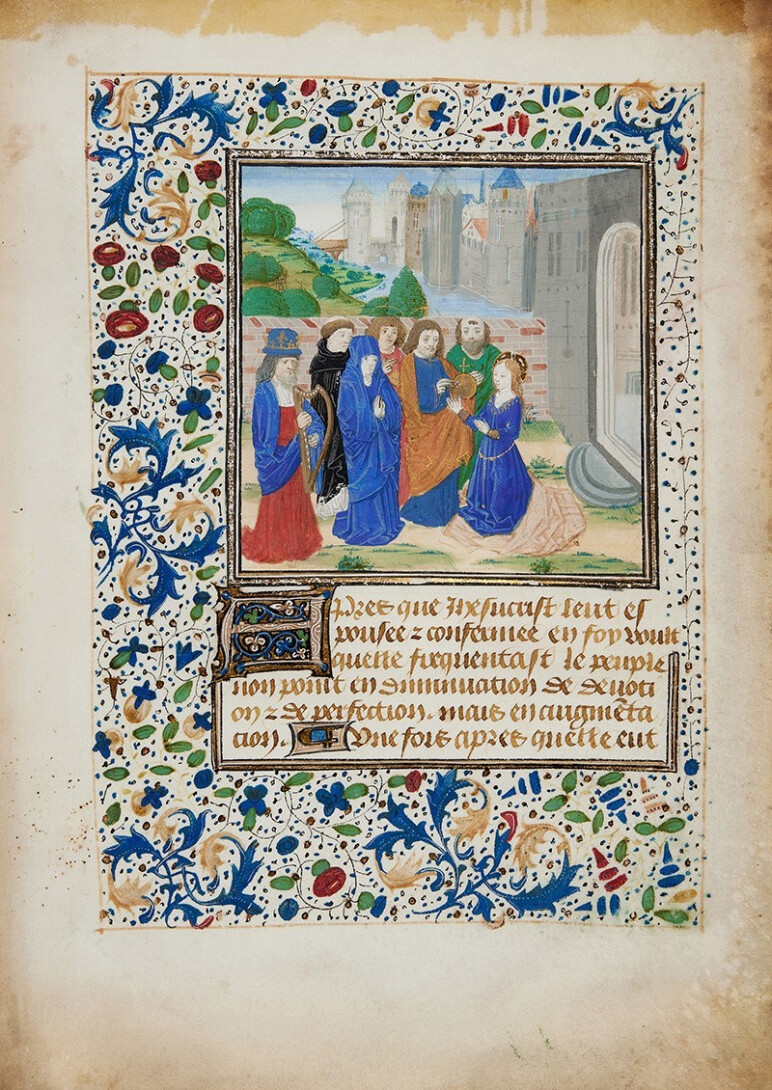 Apres que Ihesucrist leut es
pousee ⁊ confermee en foy voult
quelle frequentast le peuple
non point en diminuation de deuoti
on ⁊ de perfection . mais en augmẽta
cion . Vne fois apres quelle eut